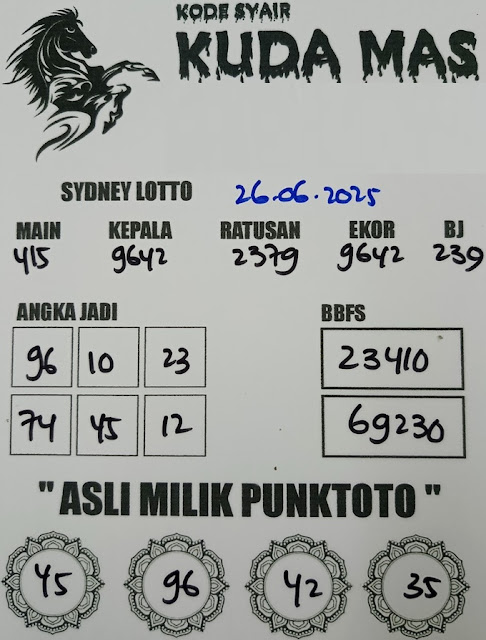 KODE SYAIR
KUDA MAS
SYDNEY LOTTO 26.06.2025
MAIN KEPALA RATUSAN EKOR BJ
415 9642 2379 9642 239
ANGKA JADI BBFS
96 10 23 23410
74 45 12 69230
"ASLI MILIK PUNKTOTO"
45 96 42 35